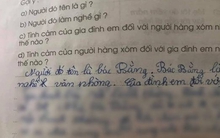 a) Người đó tên là gì ?
b) Người đó làm nghề gì ?
c) Tình cảm của gia đình em đối với người hàng xóm n
thế nào ?
d) Tình cảm của người hàng xóm đối với gia đình em n
thế nào ?
Người đó tên là bác Bằng. Bác Bằng là
nghề văn phòng. Gia đình em đối với